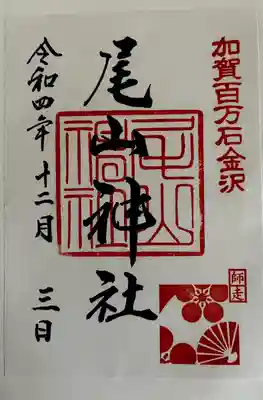 加賀百万石金沢
尾山神社
尾山神社
師走
令和四年十二月三日